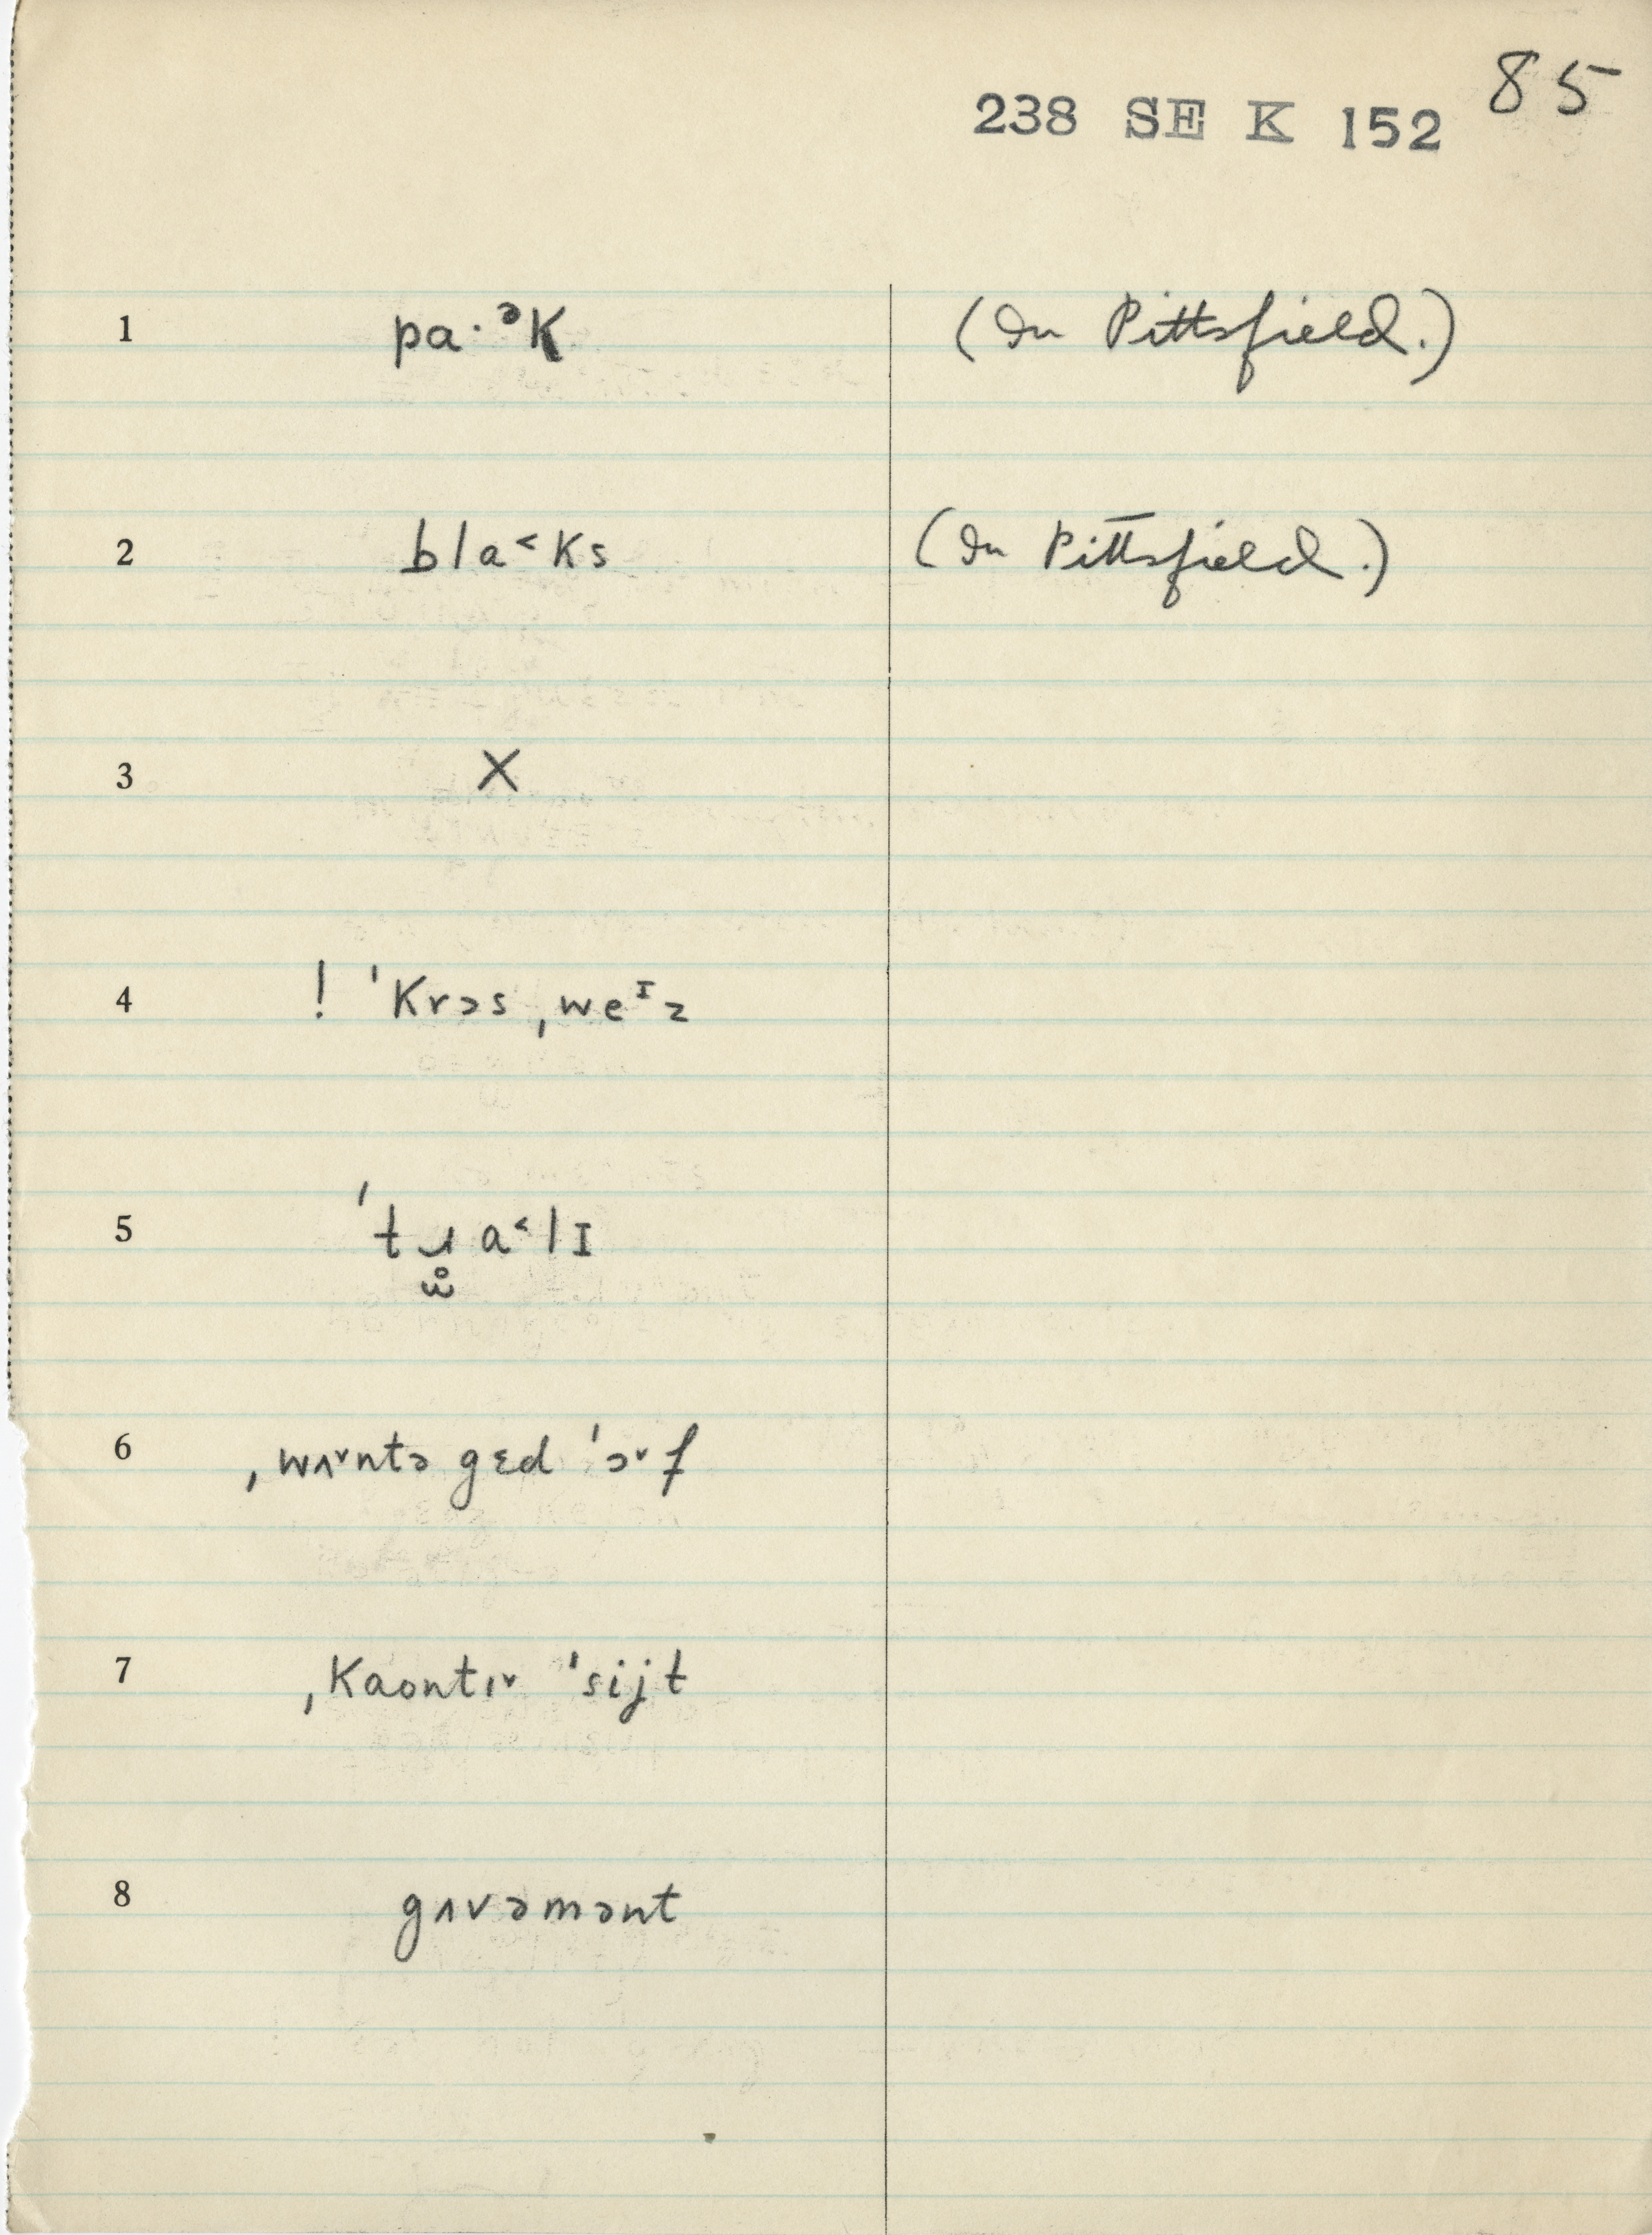 85
238 SE K 152
1 pa·ᵊK (In Pittsfield.)
2 bla˂Ks (In Pittsfield.)
3 X
4 ! ˈKrɔs ˌweᴵz
5 ˈtɹa˂lɪ
ω̊
6 ˌwʌ˅ntə gɛd ˈɔ˅f
7 ˌKaontɪ˅ ˈsijt
8 gʌvəmənt